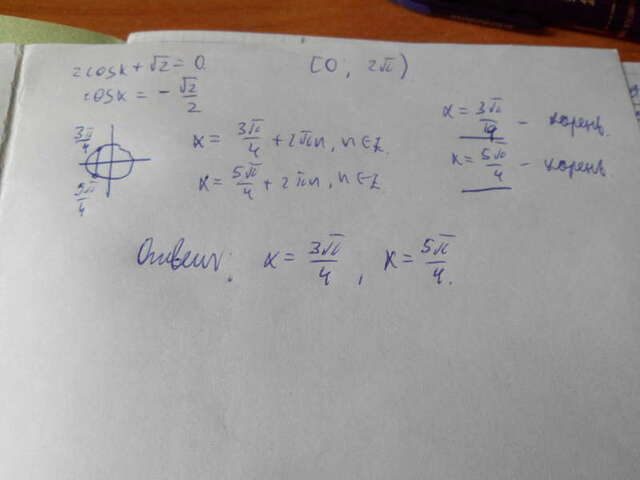 2cosx + √2 = 0. [0; 2π)
cosx = -√2/2
3π/4
5π/4
x = 3π/4 + 2πn, n∈Z.
x = 5π/4 + 2πn, n∈Z.
x = 3π/4 - корень.
x = 5π/4 - корень.
Ответ: x = 3π/4, x = 5π/4.